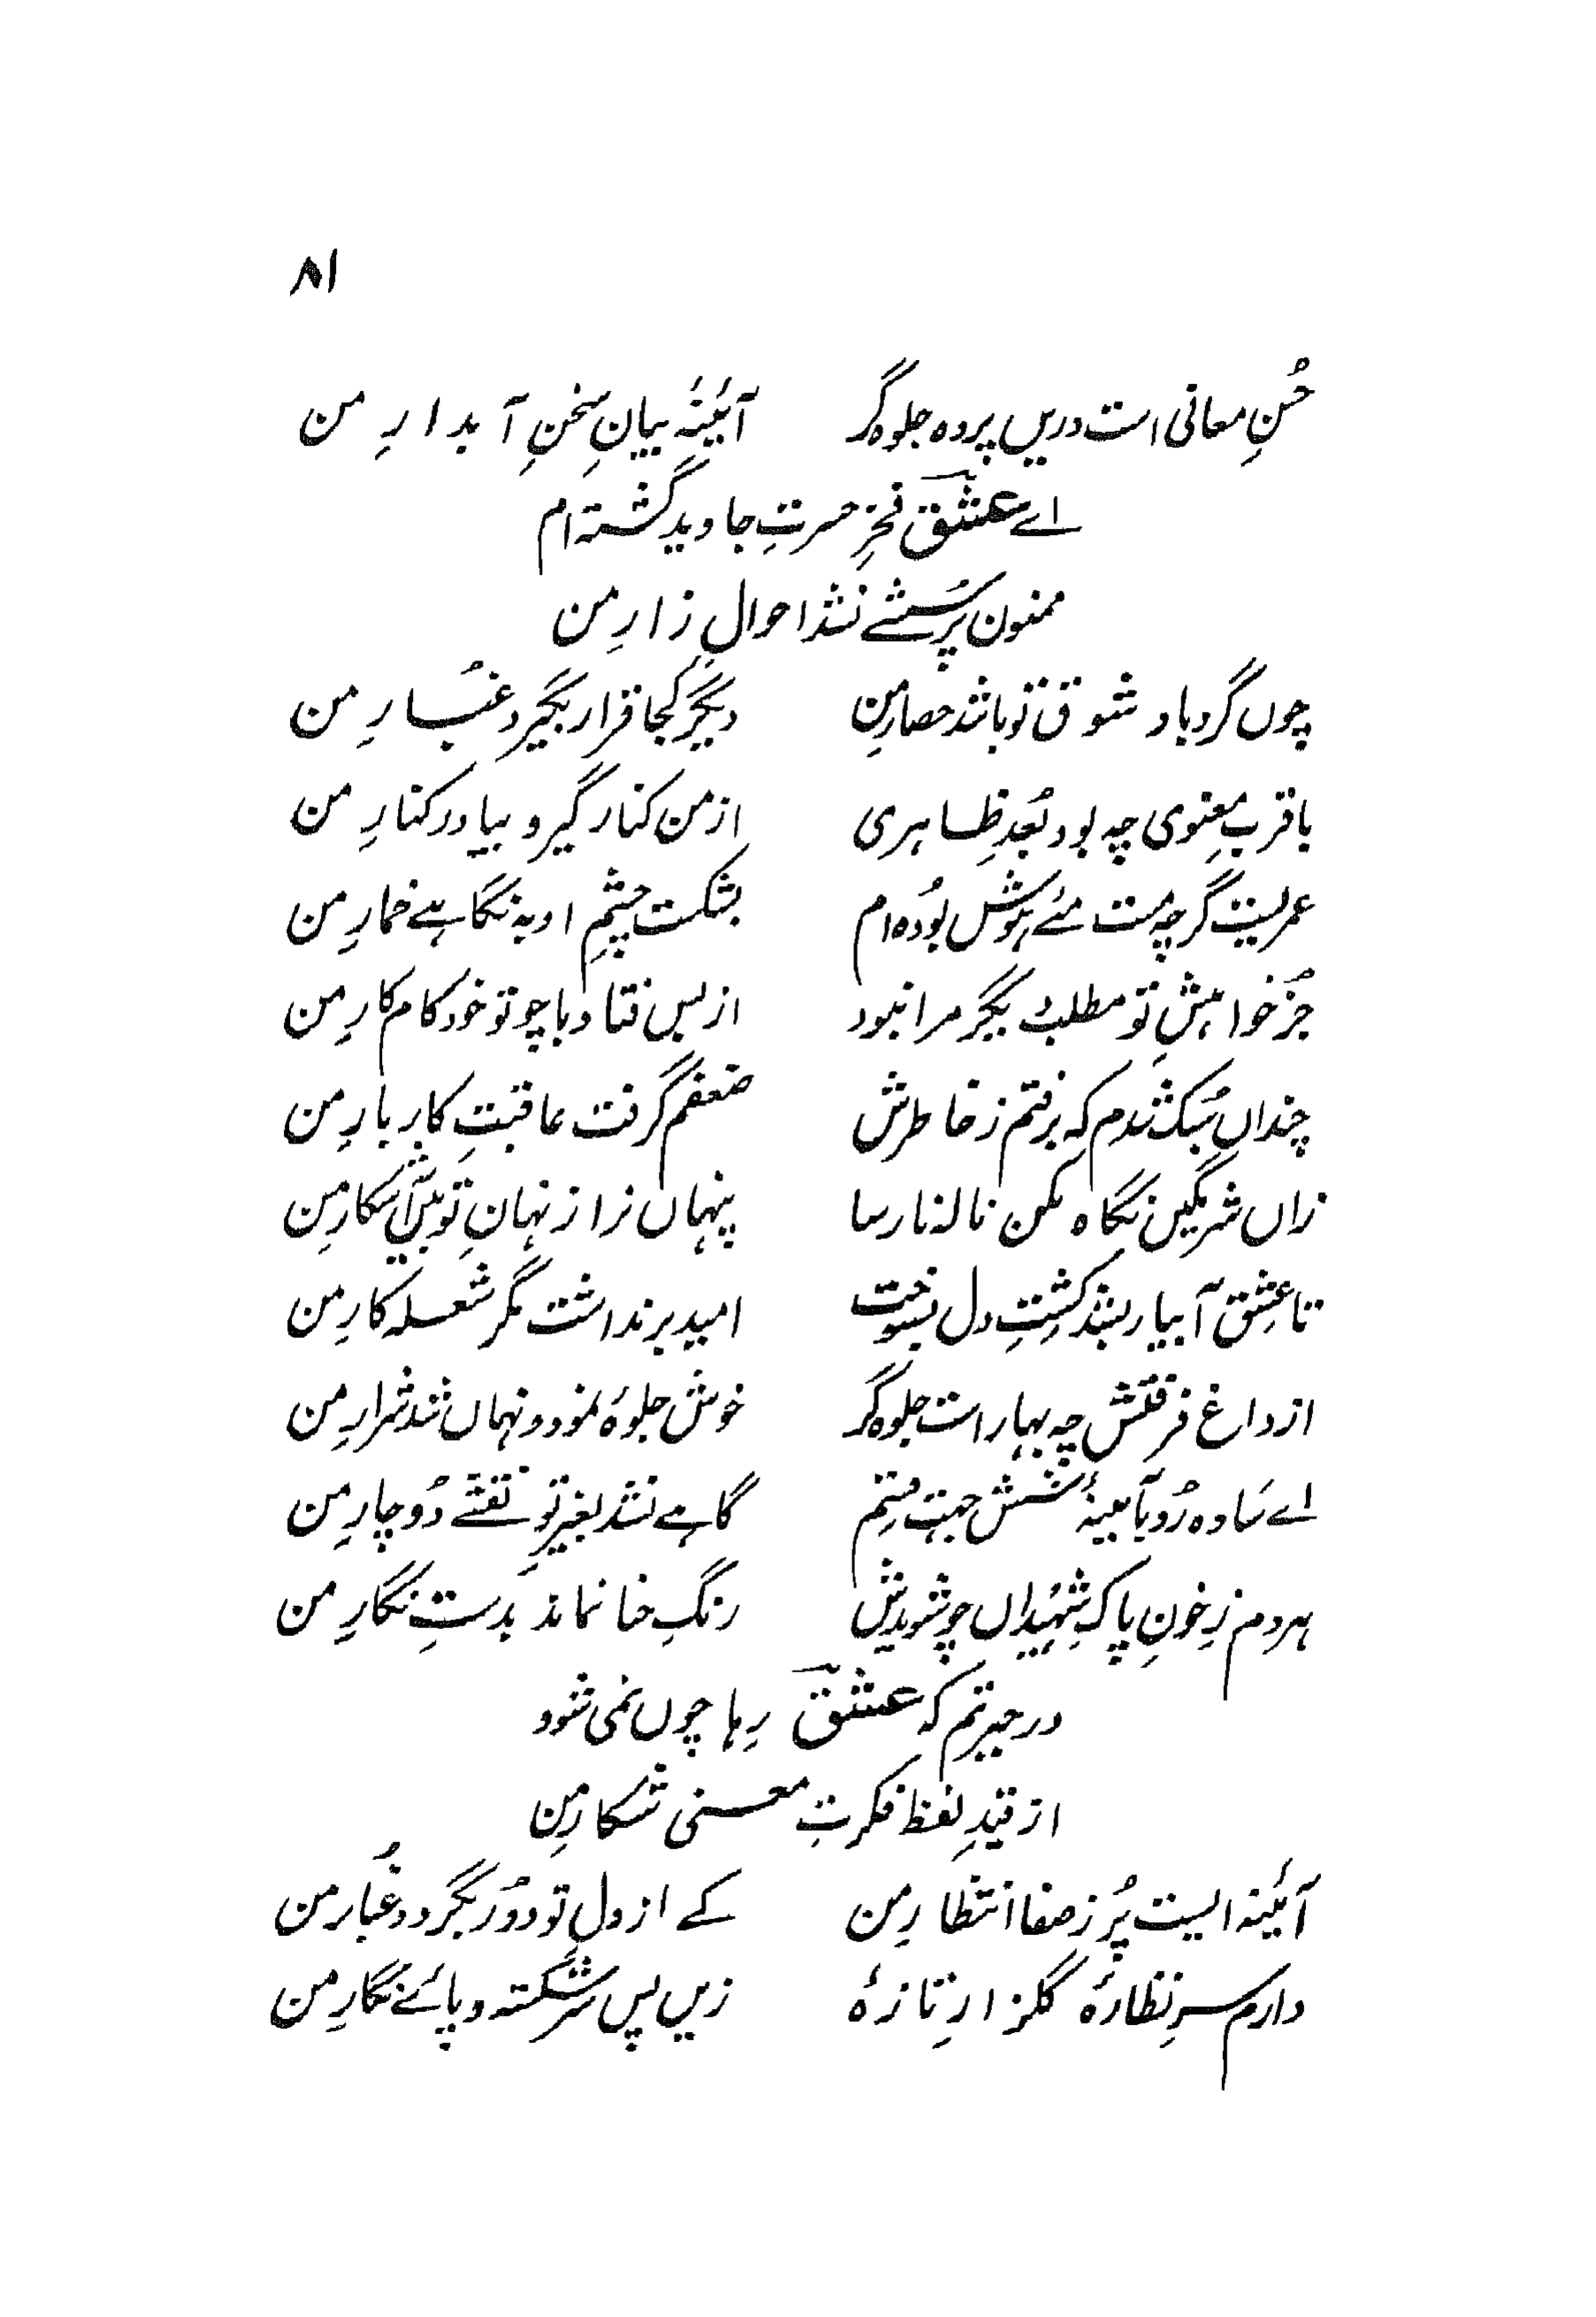 ۸۱
حُسنِ معانی است دریں پردہ جلوہ گر آئینۂ بیانِ سخنِ آبدارِ من
اے عشقؔ فخرِ حسرتِ جاوید گشتہ ام
ممنون پرسُشے نشد احوالِ زارِ من
چوں گردباد شوق تو باشد حصارِ من دیگر کُجا قرار بگیرد غبُارِ من
با قربِ معنوی چہ بود بُعدِ ظاہری از من کنار گیر و بیا در کنارِ من
عمریست گرچہ مست مئے ہوش بُودہ ام بشکست چشمِ او بہ نگاہے خمارِ من
جُز خواہشِ تو مطلب دیگر مرا نبود از بس فتاد با چو تو خود کام کارِ من
چنداں سُبک شدم کہ برفتم ز خاطرش ضعفم گرفت عاقبتِ کار بارِ من
زاں شرمگیں نگاہ مکن نالہ نارسا پنہاں تر از نہانِ تو بیں آشکارِ من
تا عشِق آبیار بشد کشِتِ دل بسوخت امید بر نداشت مگر شعلہ کارِ من
از داغ فرقتش چہ بہار است جلوہ گر خوش جلوۂ نمود و نہاں شد شرارِ من
اے سَادہ رُو بآئینۂ شش جہت قسِم گاہے نشد بغیرِ تو نقشے دُوچارِ من
ہر دم زِ خونِ پاکِ شہیُداں چو شویدش رنگِ حنا نماند بدستِ نگارِ من
در حیرتم کہ عشقؔ رِہا چوں نمی شود
از قیدِ لفظ فکرتِ معنی شکارِ من
آئینہ ایست پُر ز صفا انتظارِ من کے از دلِ تو دوُر بگردد غُبار من
دارم سرِ نظارۂ گلزارِ تازۂ زیں پس سرِ شکستہ و پائے نگارِ من